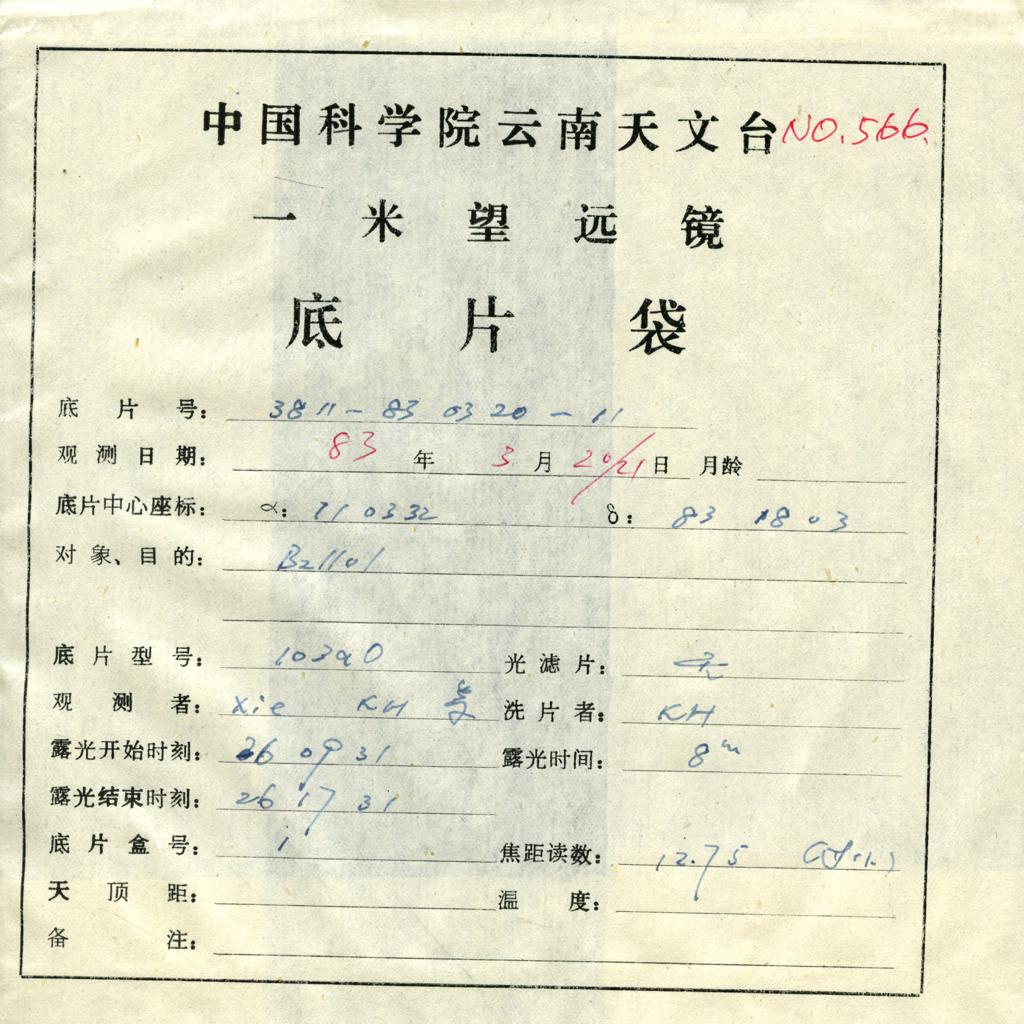 中国科学院云南天文台 NO.566.
一米望远镜
底片袋
底片号: 3811-83 03 20-11
观测日期: 83年 3月 20/21日 月龄
底片中心座标: α: 71 0332 δ: 83 18 03
对象、目的: B21101
底片型号: 103aO 光滤片: 无
观测者: Xie KH 洗片者: KH
露光开始时刻: 26 09 31 露光时间: 8m
露光结束时刻: 26 17 31
底片盒号: 1 焦距读数: 12.75
天顶距: 温度:
备注: